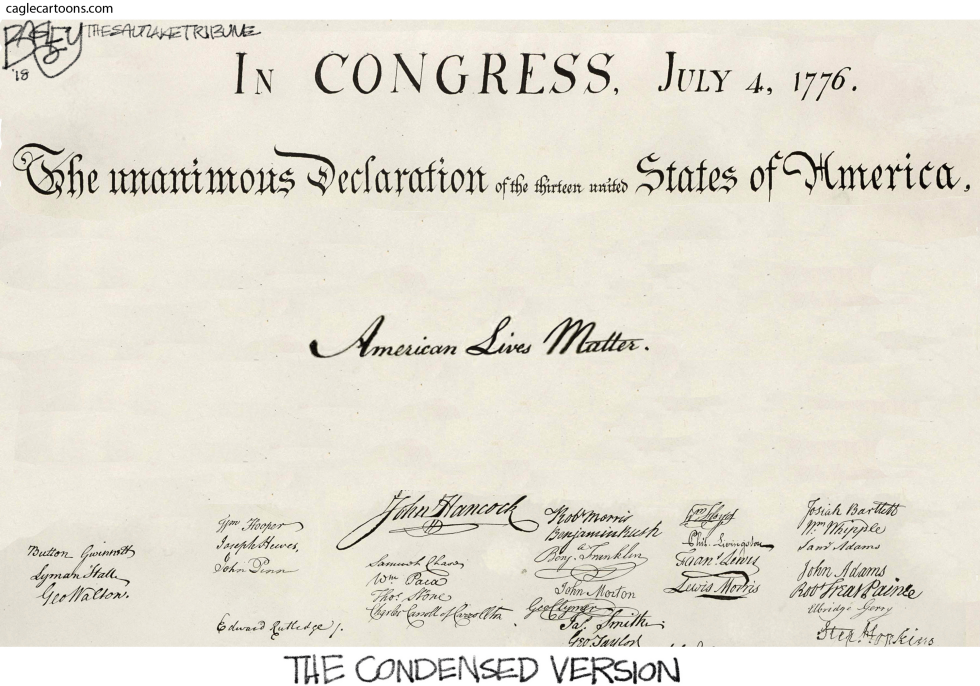 caglecartoons.com
BAGLEY THE SALT LAKE TRIBUNE
'18
IN CONGRESS, JULY 4, 1776.
The unanimous Declaration of the thirteen united States of America.
American Lives Matter.
Button Gwinnett
Lyman Hall
Geo Walton.
Wm Hooper
Joseph Hewes,
John Penn
Edward Rutledge /.
John Hancock
Samuel Chase
Wm Paca
Thos Stone
Charles Carroll of Carrollton
Robt Morris
Benjamin Rush
Benj. Franklin
John Morton
Geo Clymer
Jas. Smith
Geo. Taylor
Wm Floyd
Phil. Livingston
Frans. Lewis
Lewis Morris
Josiah Bartlett
Wm Whipple
Saml Adams
John Adams
Robt Treat Paine
Elbridge Gerry
Step. Hopkins
THE CONDENSED VERSION